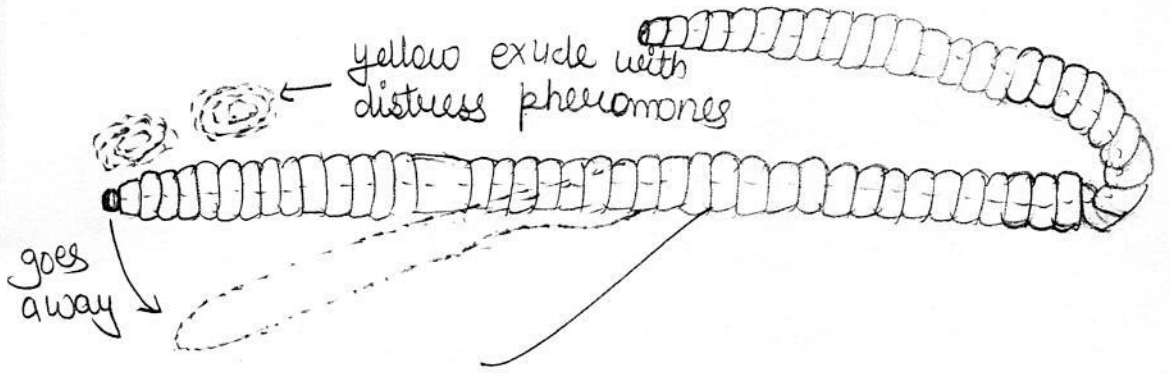 yellow exude with
distress pheromones
goes
away